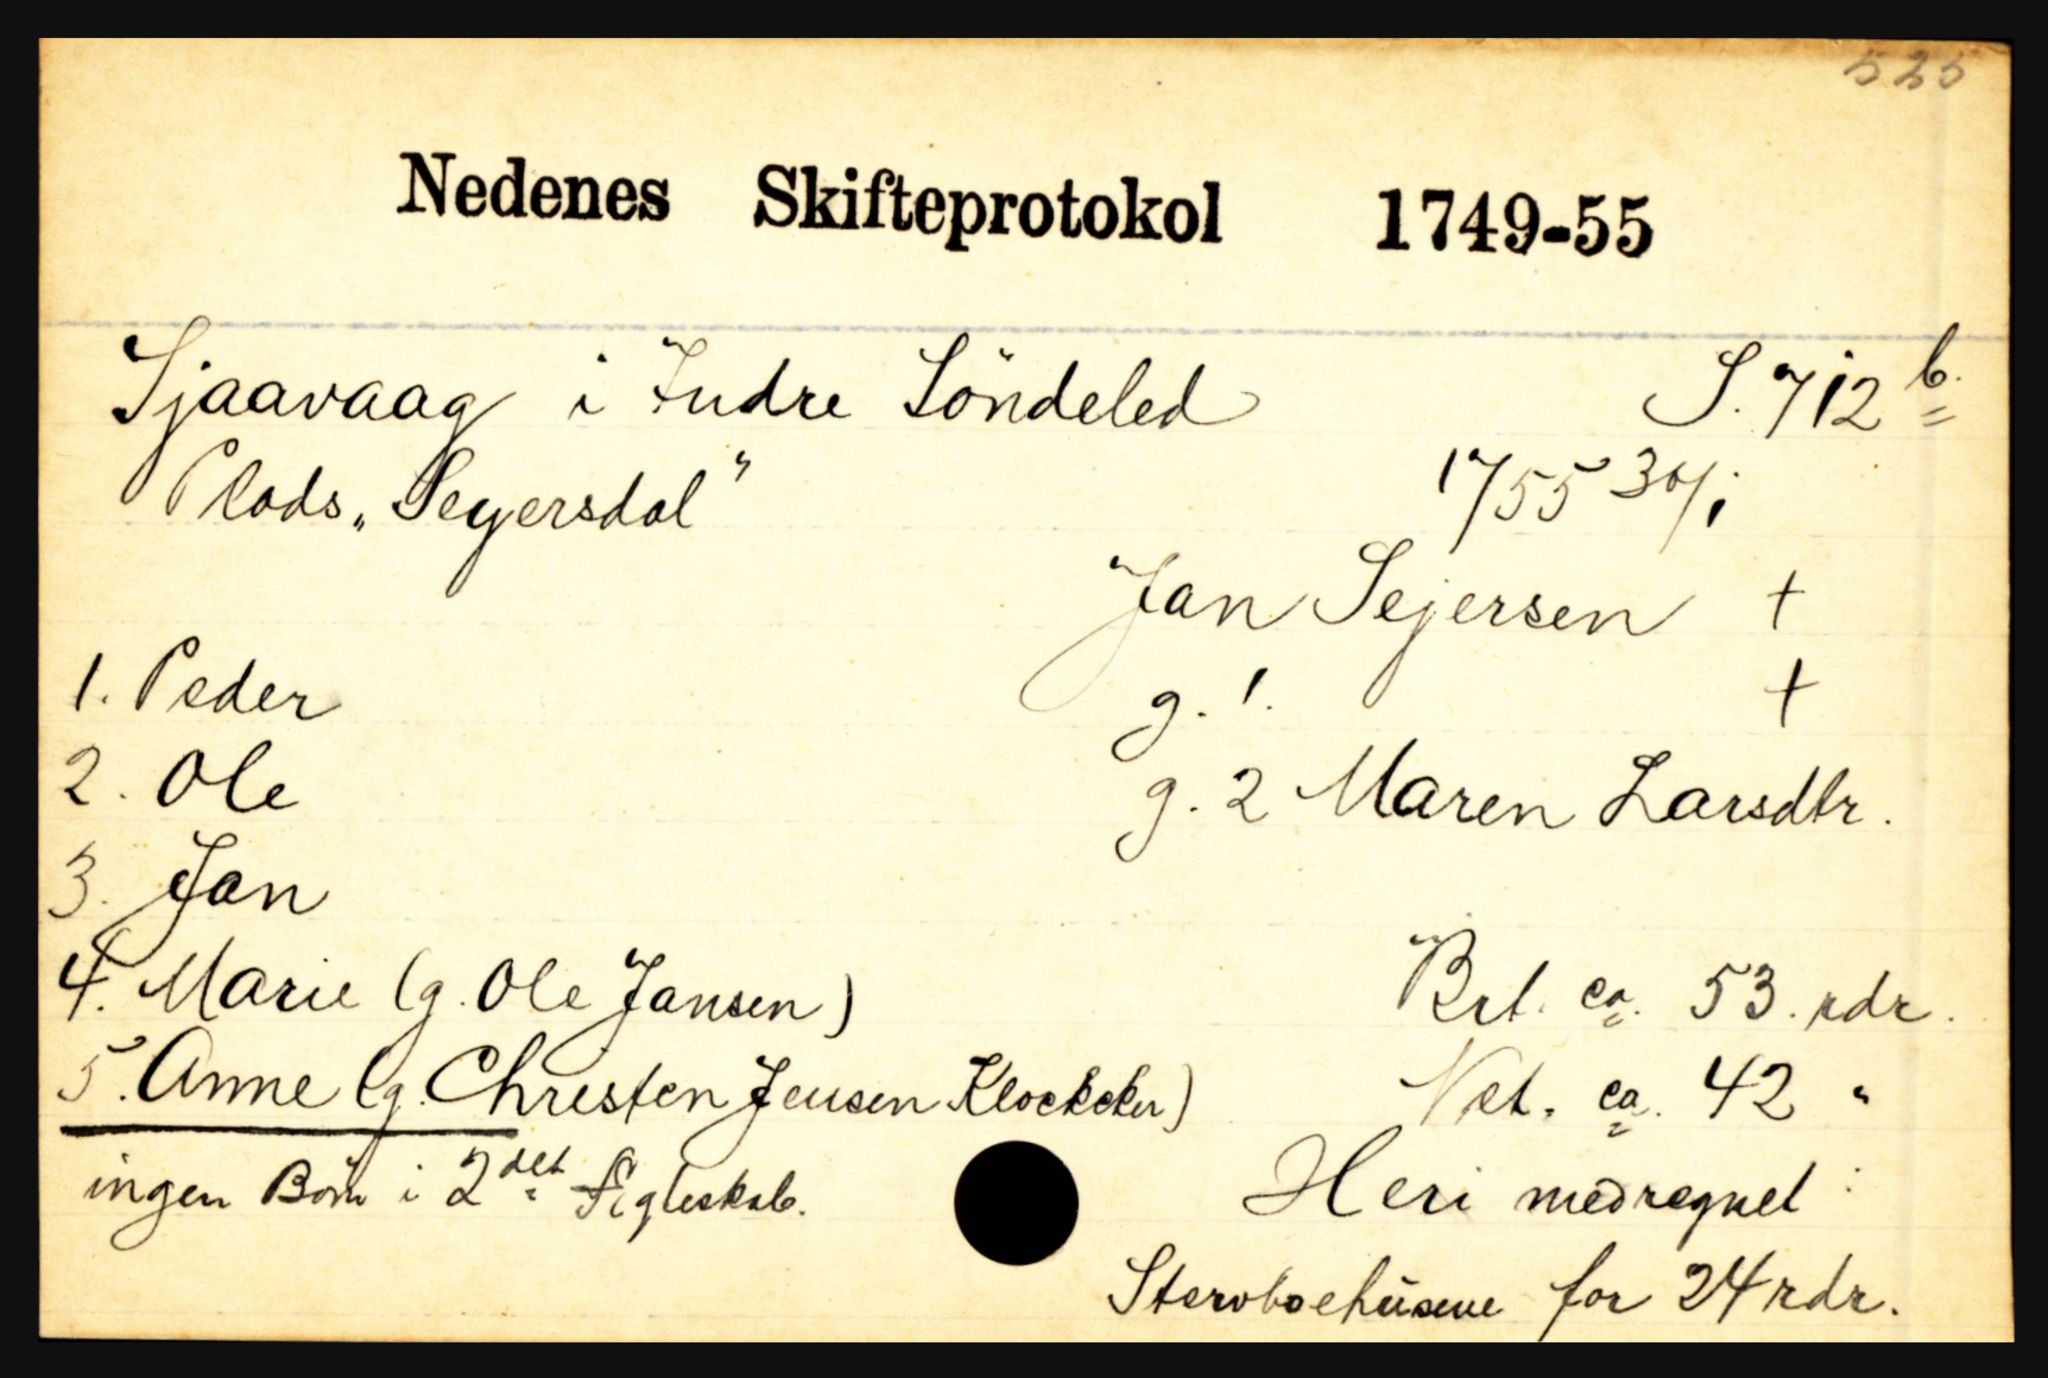 525
Nedenes Skifteprotokol 1749-55
Sjaavaag i Indre Söndeled S. 712 b.
Plads „Seyersdal" 1755 30/1
Jan Sejersen +
1. Peder g. 1. +
2. Ole g. 2 Maren Larsdtr.
3. Jan
4. Marie (g. Ole Jansen) Brt. ca. 53. rdr.
5. Anne (g. Christen Jensen Klockcker) Net. ca. 42 "
ingen Börn i 2det Egteskab. Heri medregnet :
Stervboehusene for 24 rdr.